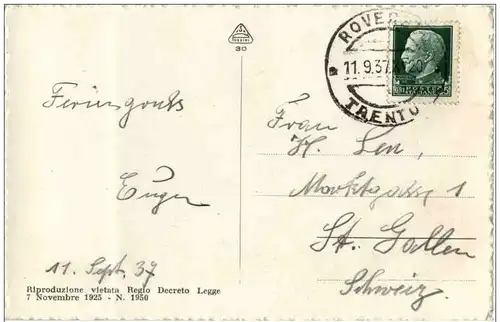 30
ROVER
11.9.37. 20
TRENTO
POSTE
Feriengruss
Eugen
11. Sept. 37
Riproduzione vietata Regio Decreto Legge
7 Novembre 1925 - N. 1950
Frau
H. Len,
Marktgasse 1
St. Gallen
Schweiz.